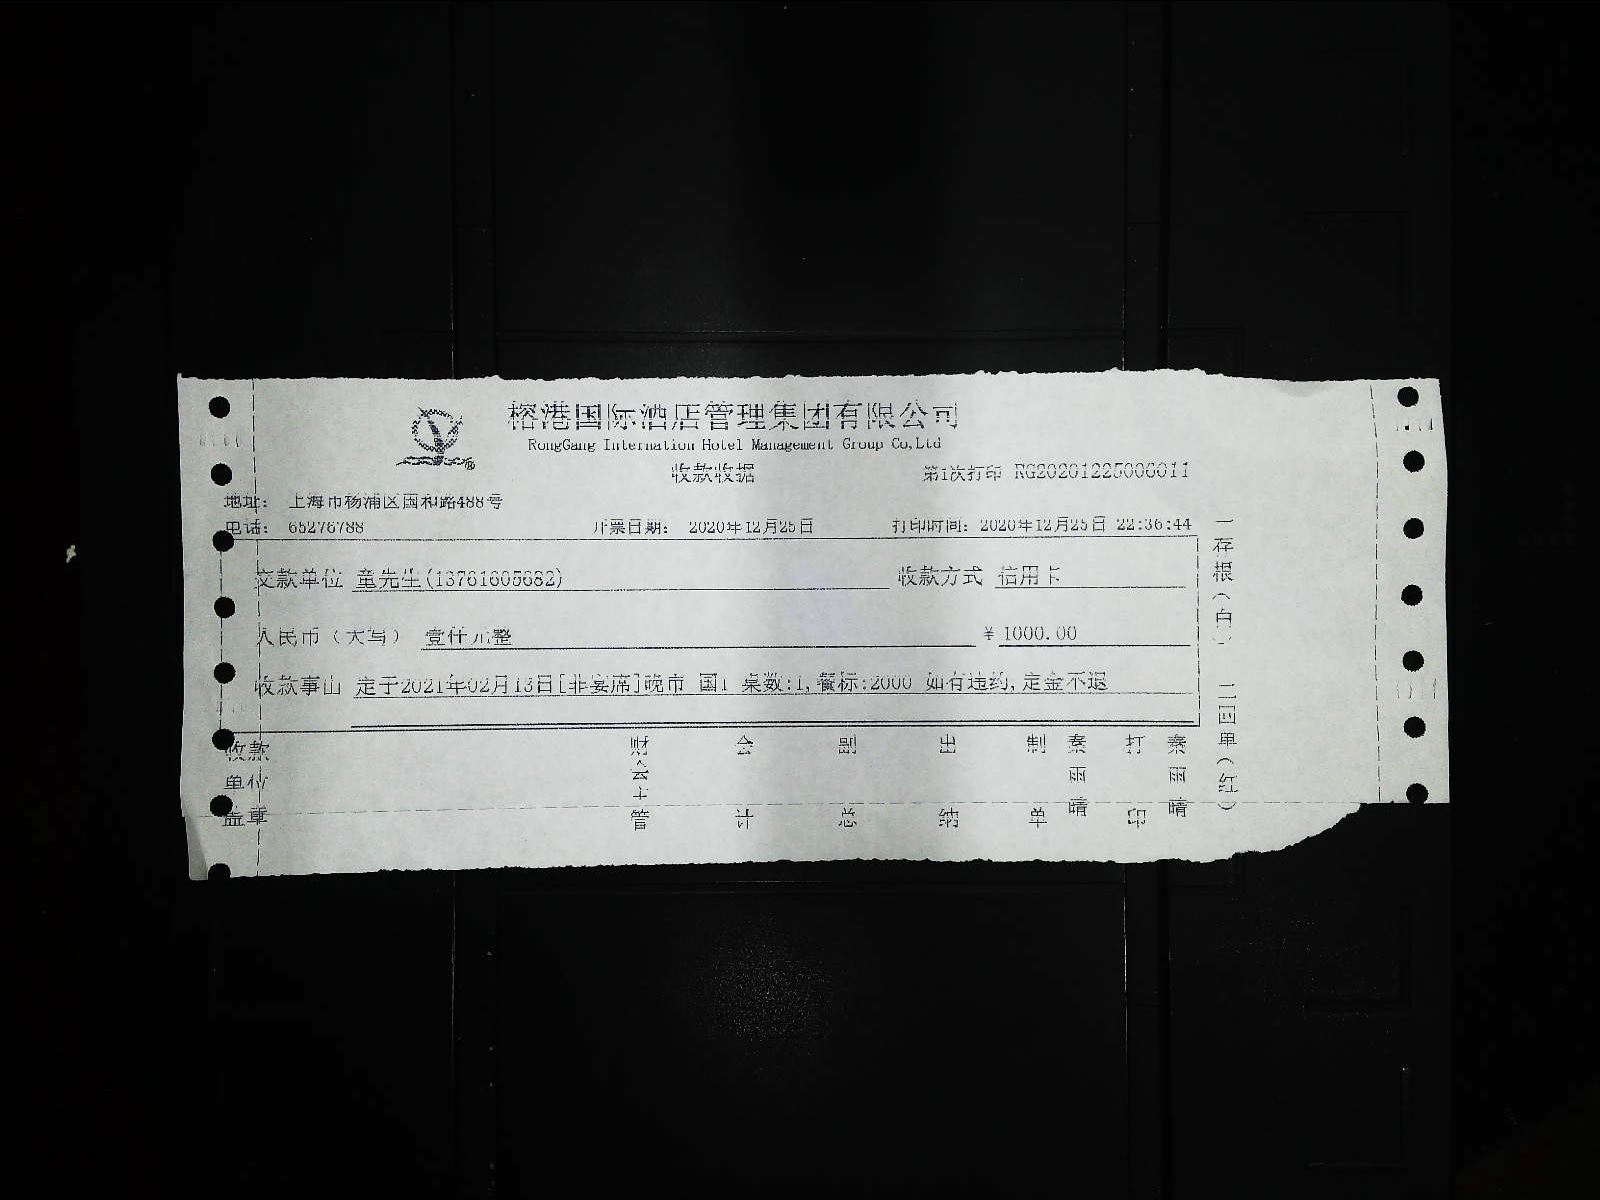 榕港国际酒店管理集团有限公司
RongGang Internation Hotel Management Group Co,Ltd
收款收据
第1次打印 RG20201225000011
地址： 上海市杨浦区国和路488号
电话： 65276788 开票日期： 2020年12月25日 打印时间：2020年12月25日 22:36:44
交款单位 童先生(13761605682) 收款方式 信用卡
人民币（大写） 壹仟元整 ￥ 1000.00
收款事由 定于2021年02月13日[非宴席]晚市 国1 桌数:1,餐标:2000 如有违约,定金不退
收款单位盖章 财会主管 会计 副总 出纳 制单 秦雨晴 打印 秦雨晴
一存根（白） 二回单（红）